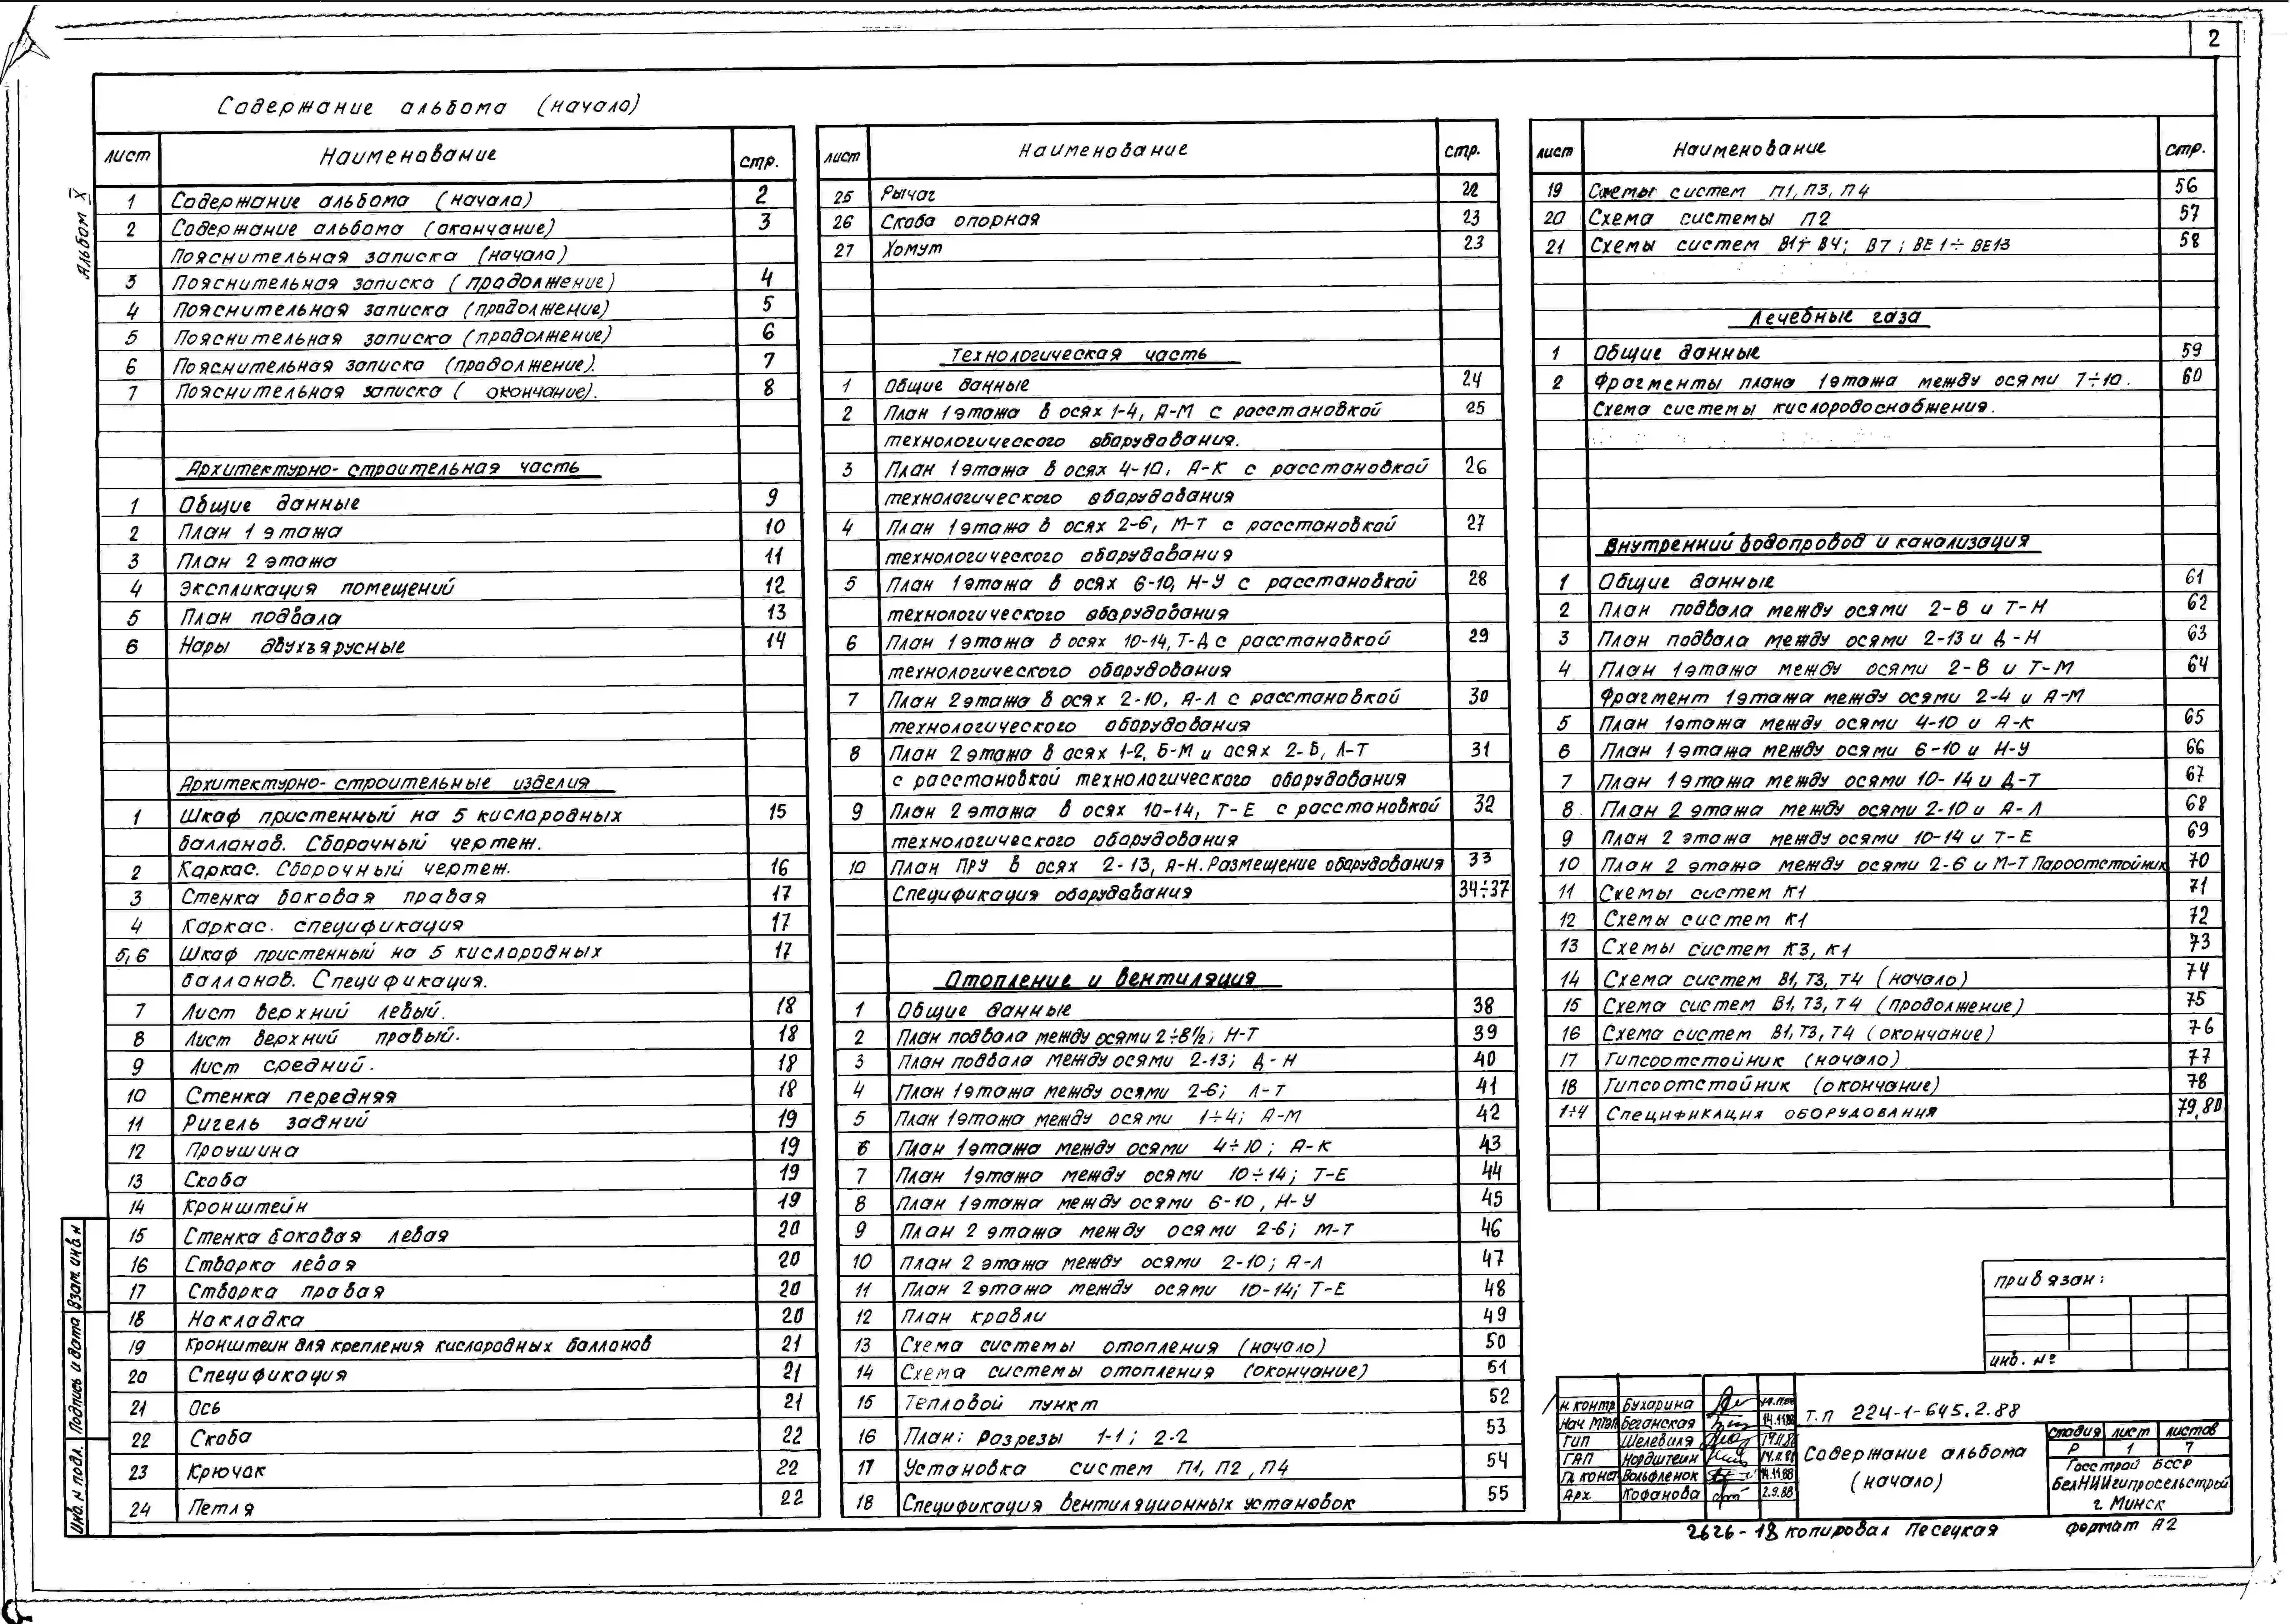 2
Альбом X
Содержание альбома (начало)
лист Наименование стр.
1 Содержание альбома (начало) 2
2 Содержание альбома (окончание) 3
Пояснительная записка (начало)
3 Пояснительная записка (продолжение) 4
4 Пояснительная записка (продолжение) 5
5 Пояснительная записка (продолжение) 6
6 Пояснительная записка (продолжение). 7
7 Пояснительная записка ( окончание). 8
Архитектурно-строительная часть
1 Общие данные 9
2 План 1 этажа 10
3 План 2 этажа 11
4 Экспликация помещений 12
5 План подвала 13
6 Нары двухъярусные 14
Архитектурно-строительные изделия
1 Шкаф пристенный на 5 кислородных 15
баллонов. Сборочный чертеж.
2 Каркас. Сборочный чертеж. 16
3 Стенка боковая правая 17
4 Каркас. спецификация 17
5,6 Шкаф пристенный на 5 кислородных 17
баллонов. Спецификация.
7 Лист верхний левый. 18
8 Лист верхний правый. 18
9 Лист средний. 18
10 Стенка передняя 18
11 Ригель задний 19
12 Проушина 19
13 Скоба 19
14 Кронштейн 19
15 Стенка боковая левая 20
16 Створка левая 20
17 Створка правая 20
18 Накладка 20
19 Кронштейн для крепления кислородных баллонов 21
20 Спецификация 21
21 Ось 21
22 Скоба 22
23 Крючок 22
24 Петля 22
лист Наименование стр.
25 Рычаг 22
26 Скоба опорная 23
27 Хомут 23
Технологическая часть
1 Общие данные 24
2 План 1 этажа в осях 1-4, А-М с расстановкой 25
технологического оборудования.
3 План 1 этажа в осях 4-10, А-К с расстановкой 26
технологического оборудования
4 План 1 этажа в осях 2-6, М-Т с расстановкой 27
технологического оборудования
5 План 1 этажа в осях 6-10, Н-У с расстановкой 28
технологического оборудования
6 План 1 этажа в осях 10-14, Т-Д с расстановкой 29
технологического оборудования
7 План 2 этажа в осях 2-10, А-Л с расстановкой 30
технологического оборудования
8 План 2 этажа в осях 1-2, Б-М и осях 2-6, Л-Т 31
с расстановкой технологического оборудования
9 План 2 этажа в осях 10-14, Т-Е с расстановкой 32
технологического оборудования
10 План ПРУ в осях 2-13, А-Н. Размещение оборудования 33
Спецификация оборудования 34÷37
Отопление и вентиляция
1 Общие данные 38
2 План подвала между осями 2÷8½; Н-Т 39
3 План подвала между осями 2-13; Д-Н 40
4 План 1 этажа между осями 2-6; Л-Т 41
5 План 1 этажа между осями 1÷4; А-М 42
6 План 1 этажа между осями 4÷10; А-К 43
7 План 1 этажа между осями 10÷14; Т-Е 44
8 План 1 этажа между осями 6-10, Н-У 45
9 План 2 этажа между осями 2-6; М-Т 46
10 План 2 этажа между осями 2-10; А-Л 47
11 План 2 этажа между осями 10-14; Т-Е 48
12 План кровли 49
13 Схема системы отопления (начало) 50
14 Схема системы отопления (окончание) 51
15 Тепловой пункт 52
16 План: Разрезы 1-1; 2-2 53
17 Установка систем П1, П2, П4 54
18 Спецификация вентиляционных установок 55
лист Наименование стр.
19 Схемы систем П1, П3, П4 56
20 Схема системы П2 57
21 Схемы систем В1÷В4; В7; ВЕ1÷ВЕ13 58
Лечебные газа
1 Общие данные 59
2 Фрагменты плана 1 этажа между осями 7÷10. 60
Схема системы кислородоснабжения.
Внутренний водопровод и канализация
1 Общие данные 61
2 План подвала между осями 2-8 и Т-Н 62
3 План подвала между осями 2-13 и Д-Н 63
4 План 1 этажа между осями 2-8 и Т-М 64
Фрагмент 1 этажа между осями 2-4 и А-М
5 План 1 этажа между осями 4-10 и А-К 65
6 План 1 этажа между осями 6-10 и Н-У 66
7 План 1 этажа между осями 10-14 и Д-Т 67
8 План 2 этажа между осями 2-10 и А-Л 68
9 План 2 этажа между осями 10-14 и Т-Е 69
10 План 2 этажа между осями 2-6 и М-Т Пароотстойник 70
11 Схемы систем К1 71
12 Схемы систем К1 72
13 Схемы систем К3, К1 73
14 Схема систем В1, Т3, Т4 (начало) 74
15 Схема систем В1, Т3, Т4 (продолжение) 75
16 Схема систем В1, Т3, Т4 (окончание) 76
17 Гипсоотстойник (начало) 77
18 Гипсоотстойник (окончание) 78
1÷4 Спецификация оборудования 79,80
Привязан:
инв. №
Н.контр Бухарина
Нач МТЭП Беганская 14.11.88
ГИП Шелевиля
ГАП Нордштеин 14.11.88
Гл конст Вольфленок 14.11.88
Арх. Кофанова 2.9.88
Т.П 224-1-645.2.88
Содержание альбома
(начало)
стадия лист листов
Р 1 7
Госстрой БССР
БелНИИгипросельстрой
г. Минск
2626-18 копировал Песецкая формат А2
Взам. инв. н
Подпись и дата
Инв. н подл.